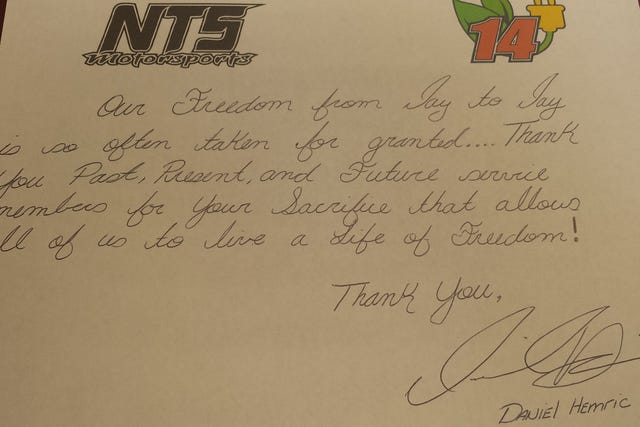 NTS
Motorsports
14
Our Freedom from Jay to Jay
is so often taken for granted.... Thank
you Past, Present, and Future service
members for your Sacrifice that allows
ll of us to live a Life of Freedom!
Thank You,
Daniel Hemric